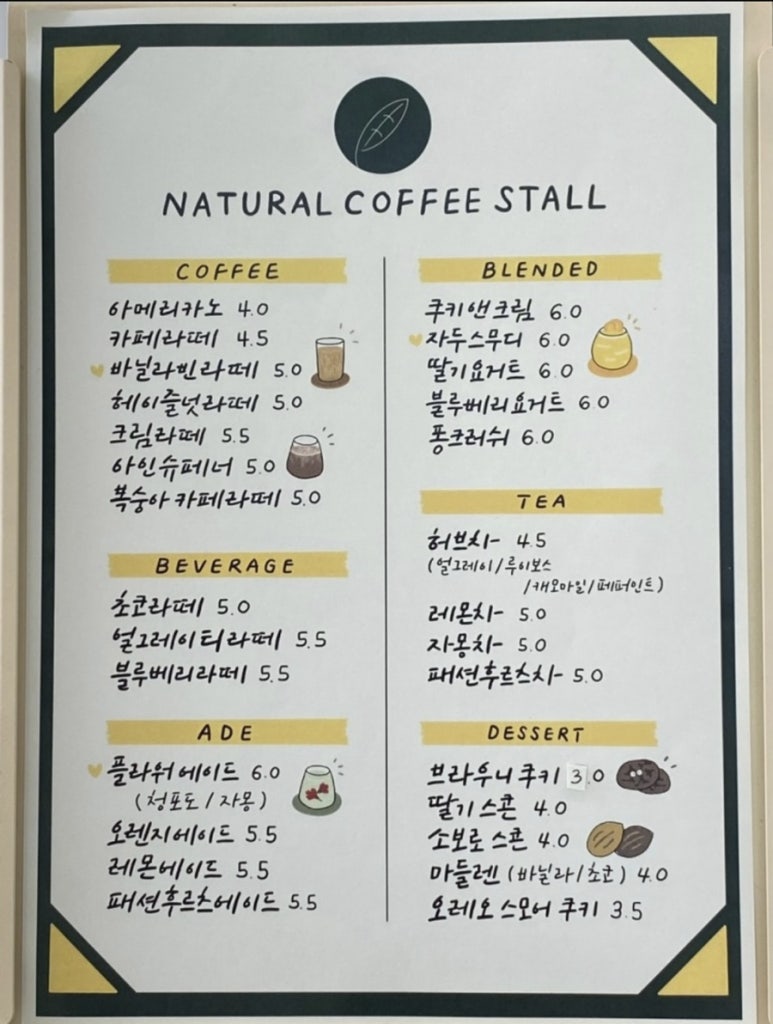 NATURAL COFFEE STALL
COFFEE
아메리카노 4.0
카페라떼 4.5
바닐라빈라떼 5.0
헤이즐넛라떼 5.0
크림라떼 5.5
아인슈페너 5.0
복숭아 카페라떼 5.0
BEVERAGE
초코라떼 5.0
얼그레이티라떼 5.5
블루베리라떼 5.5
ADE
플라워에이드 6.0
(청포도/자몽)
오렌지에이드 5.5
레몬에이드 5.5
패션후르츠에이드 5.5
BLENDED
쿠키앤크림 6.0
자두스무디 6.0
딸기요거트 6.0
블루베리요거트 6.0
퐁크러쉬 6.0
TEA
허브차- 4.5
(얼그레이/루이보스
/캐모마일/페퍼민트)
레몬차- 5.0
자몽차- 5.0
패션후르츠차- 5.0
DESSERT
브라우니 쿠키 3.0
딸기 스콘 4.0
소보로 스콘 4.0
마들렌 (바닐라/초코) 4.0
오레오 스모어 쿠키 3.5